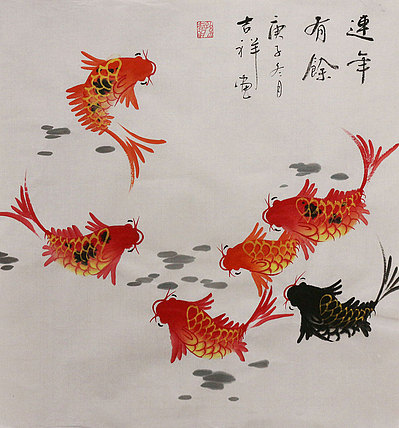 連年
有餘
庚子冬月
吉祥